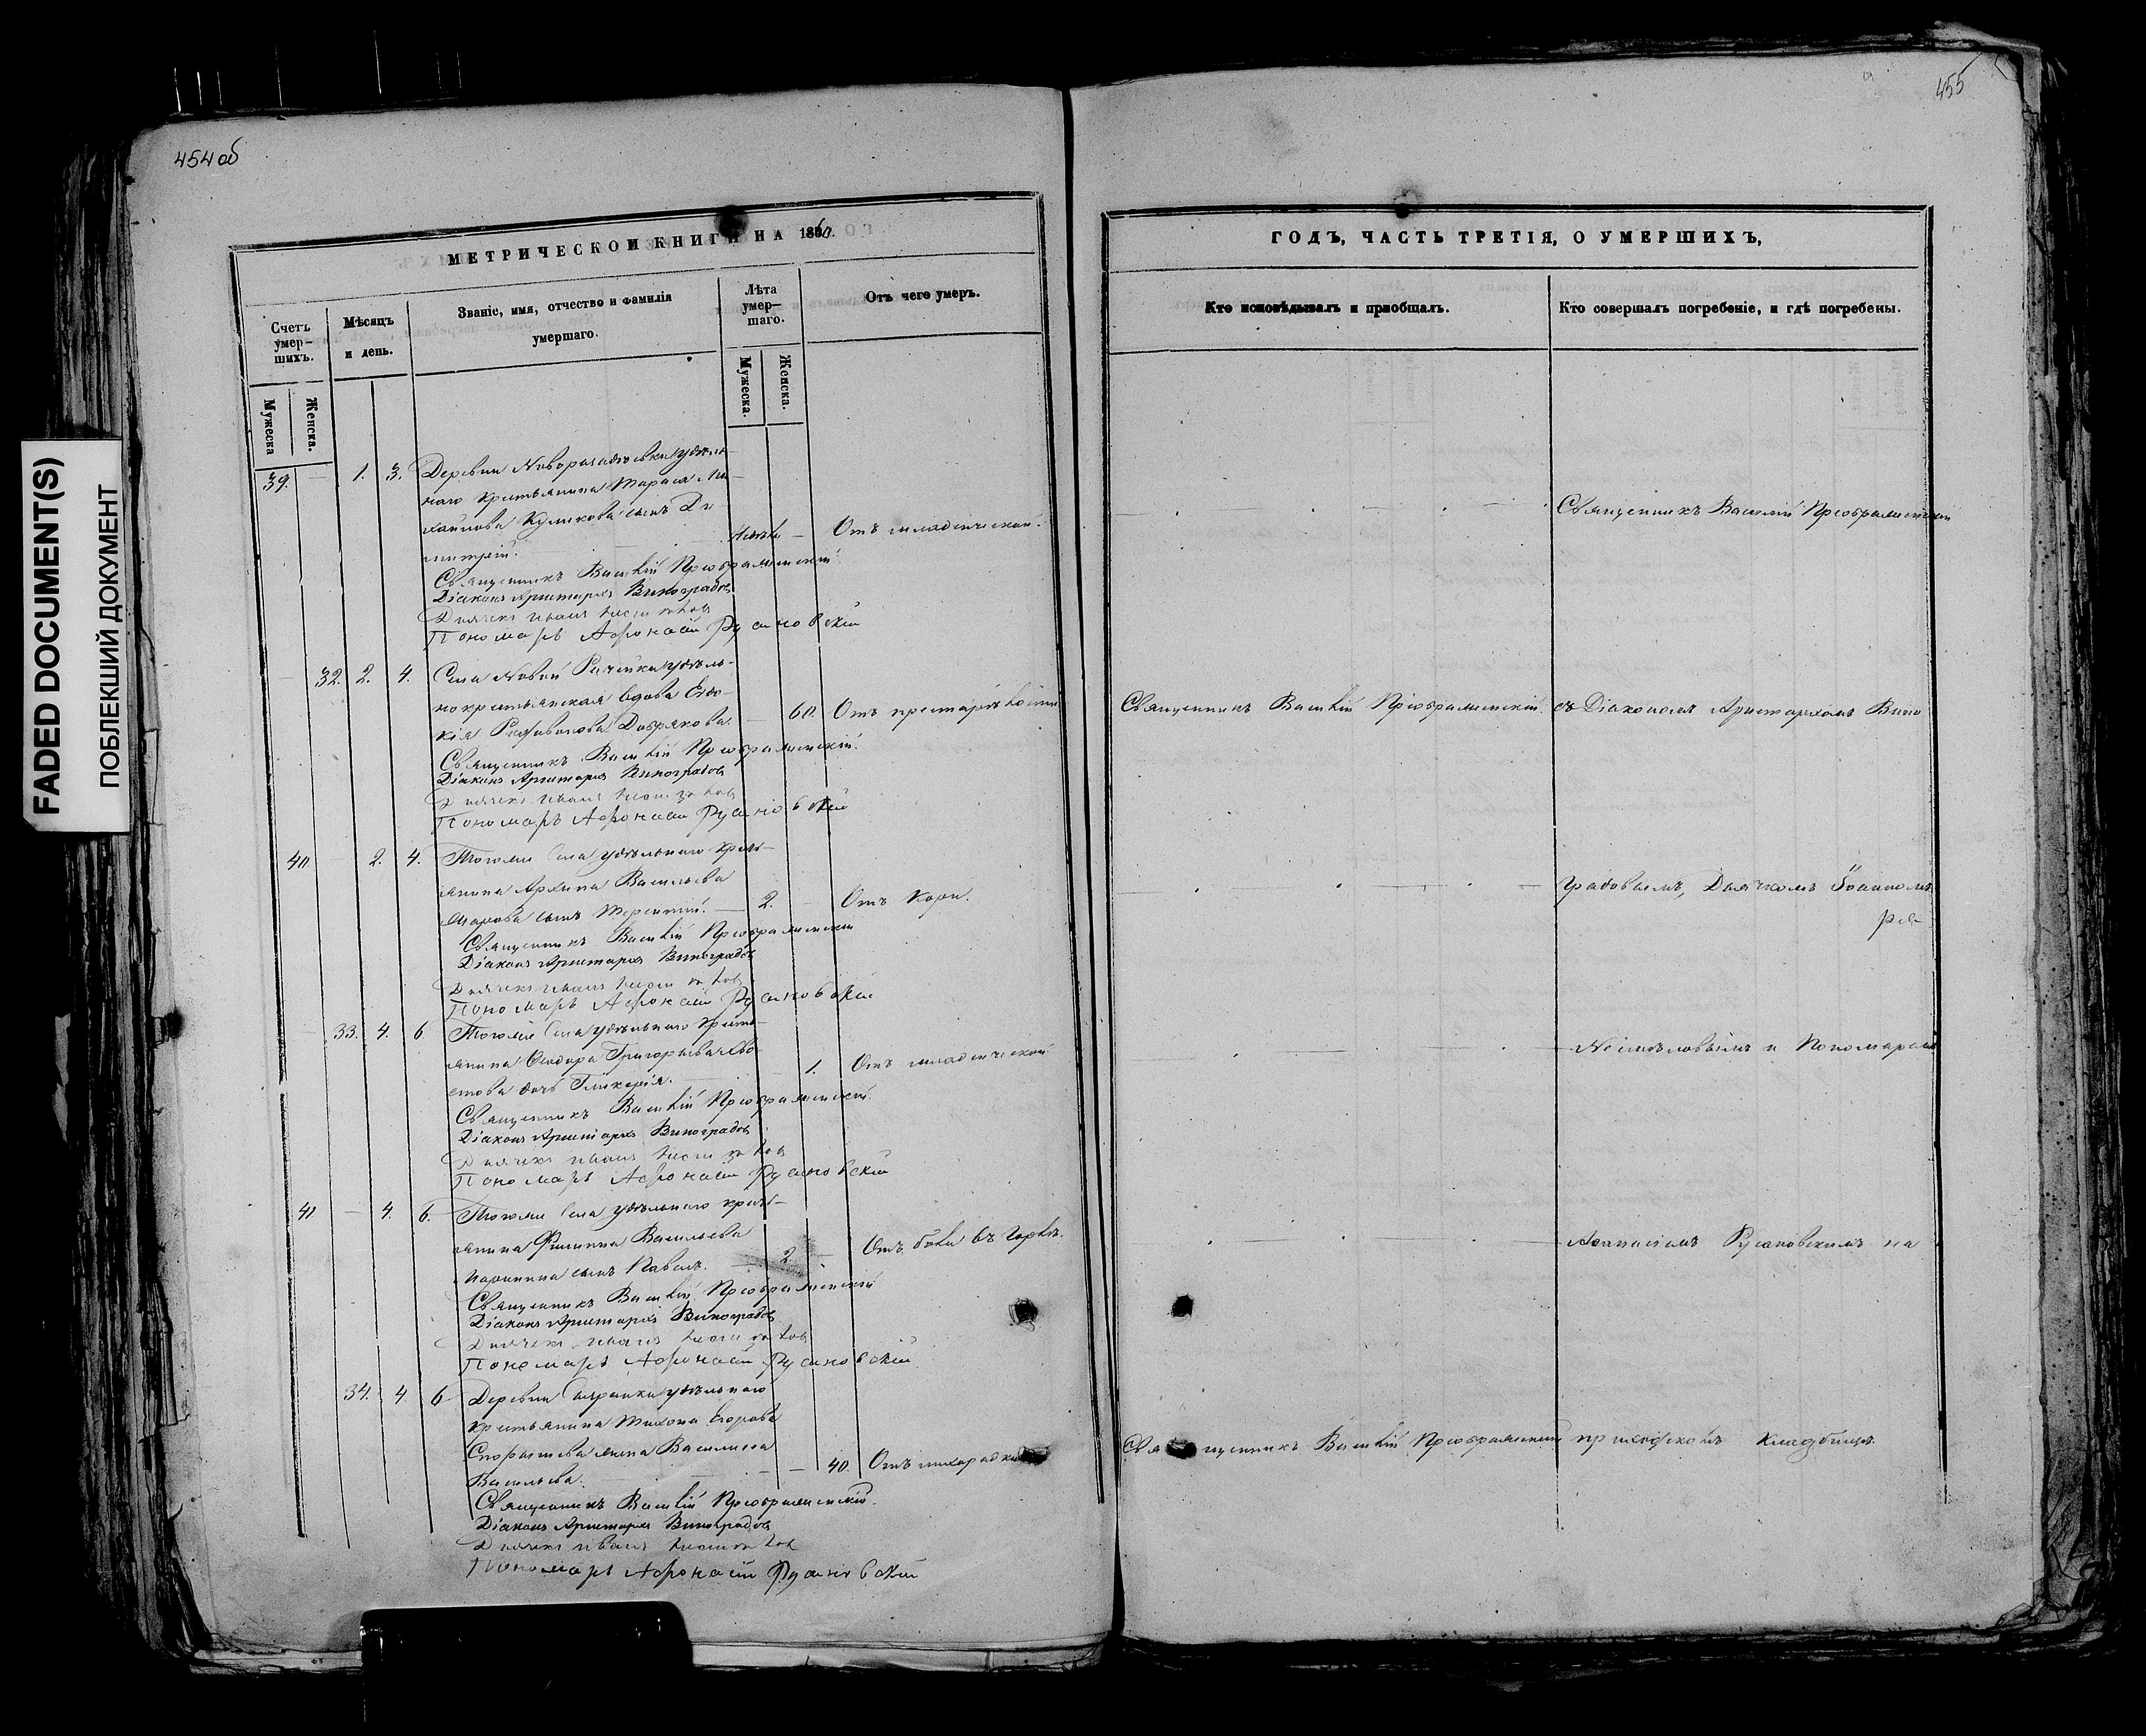 454 об
455
FADED DOCUMENT(S)
ПОБЛЕКШИЙ ДОКУМЕНТ
МЕТРИЧЕСКОЙ КНИГИ НА 1860.
ГОДЪ, ЧАСТЬ ТРЕТІЯ, О УМЕРШИХЪ,
Счетъ умер-шихъ.
Мѣсяцъ и день.
Званіе, имя, отчество и фамилія
умершаго.
Лѣта умер-шаго.
Отъ чего умеръ.
Кто исповѣдывалъ и пріобщалъ.
Кто совершалъ погребеніе, и гдѣ погребены.
Мужеска
Женска.
Мужеска.
Женска.
39. — 1. 3. Деревни удѣль-
наго крестьянина Тараса Ми-
хайлова Куликова сынъ Ди-
митрій. — Отъ младенческой.
Священникъ Василій Преображенскій
Священникъ Василій Преображенскій
Діаконъ Аристархъ Виноградовъ
Дьячекъ Иванъ
Пономарь Афонасій Русановскій
— 32. 2. 4. Села Новой Рачейки удѣль-
но крестьянская вдова Евдо-
кія Добрякова. — 60. Отъ престарѣлости
Священникъ Василій Преображенскій. съ Діакономъ Аристархомъ Вино
Священникъ Василій Преображенскій.
Діаконъ Аристархъ Виноградовъ
Дьячекъ Иванъ
Пономарь Афонасій Русановскій
40 — 2. 4. Тогоже Села удѣльнаго кресть-
янина Архипа Васильева
сынъ Терентій. — 2. — Отъ Кори.
градовымъ, Дьячкомъ Іоанномъ
Священникъ Василій Преображенскій
Діаконъ Аристархъ Виноградовъ
Дьячекъ Иванъ
Пономарь Афонасій Русановскій
— 33. 4. 6 Тогоже Села удѣльнаго кресть-
янина Ѳеодора Григорьева
дочь Гликерія. — 1. Отъ младенческой
и Пономаремъ
Священникъ Василій Преображенскій.
Діаконъ Аристархъ Виноградовъ
Дьячекъ Иванъ
Пономарь Афонасій Русановскій
41 — 4. 6. Тогоже Села удѣльнаго кресть-
янина Филиппа Васильева
сынъ Павелъ. — 2 — Отъ боли въ горлѣ.
Аѳанасіемъ Русановскимъ на
Священникъ Василій Преображенскій
Діаконъ Аристархъ Виноградовъ
Дьячекъ Иванъ
Пономарь Афонасій Русановскій
34. 4 6 Деревни удѣльнаго
крестьянина Тихона Егорова
жена Василиса
Васильева. — 40. Отъ лихорадки
Священникъ Василій Преображенскій приходскомъ Кладбищѣ.
Священникъ Василій Преображенскій.
Діаконъ Аристархъ Виноградовъ
Дьячекъ Иванъ
Пономарь Афонасій Русановскій